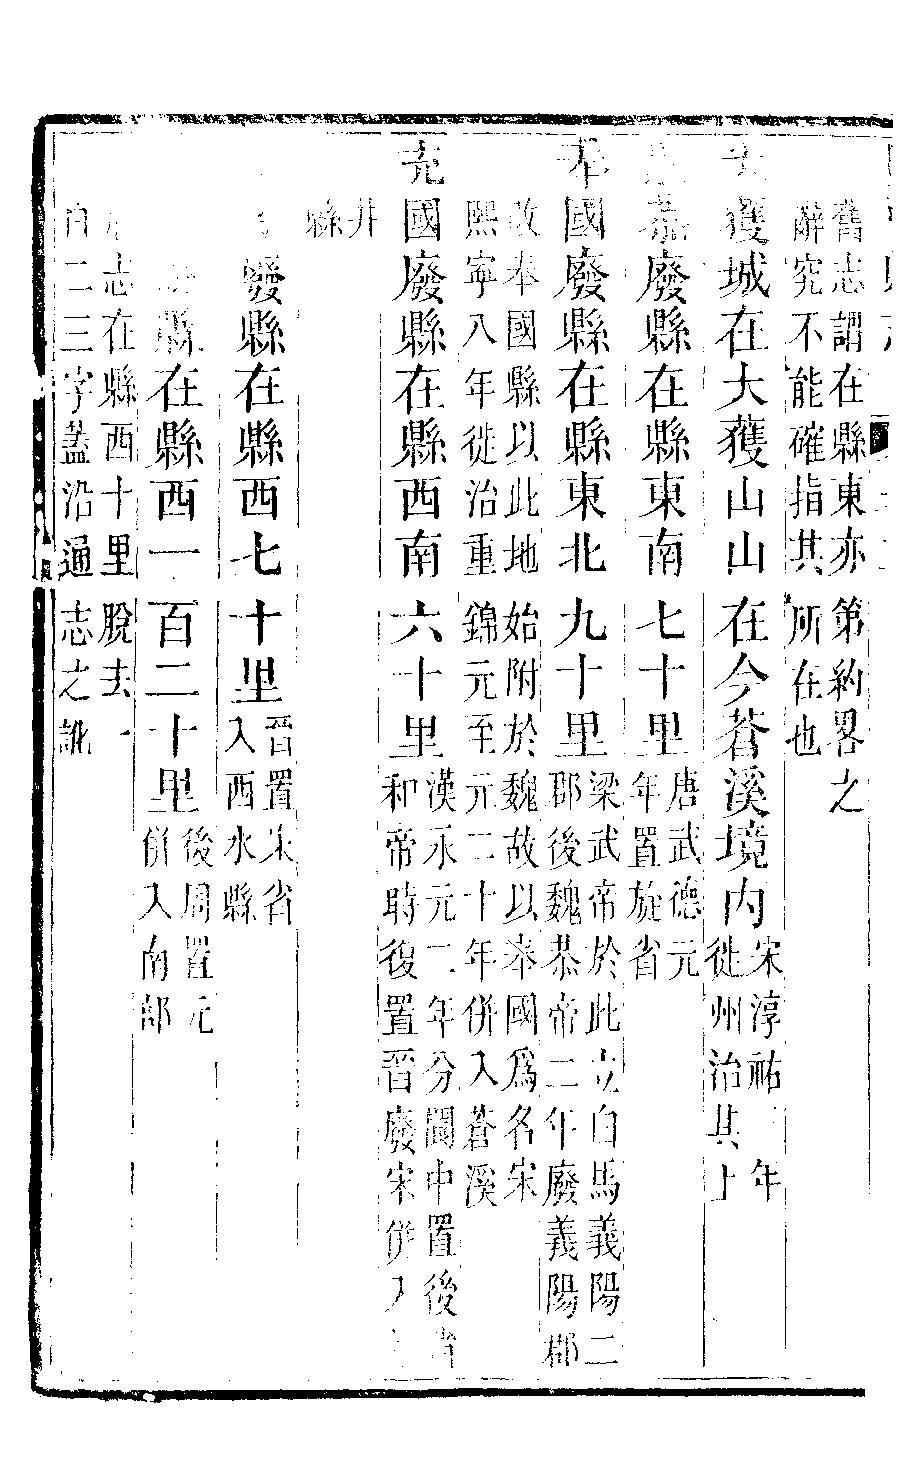 舊志謂在縣東亦第約畧之
辭究不能確指其所在也
大獲城在大獲山山在今蒼溪境內
宋淳祐年
徙州治其上
恭廢縣在縣東南七十里
唐武德元
年置旋省
奉國廢縣在縣東北九十里
梁武帝於此立白馬義陽二
郡後魏恭帝二年廢義陽郡
改奉國縣以此地始附於魏故以奉國爲名宋
熙寧八年徙治重錦元至元二十年併入蒼溪
充國廢縣在縣西南六十里
漢永元二年分閬中置後省
和帝時復置晉廢宋併入
井
縣
廢縣在縣西七十里
晉置宋省
入西水縣
縣在縣西一百二十里
後周置元
併入南部
志在縣西十里脫去一
百二三字蓋沿通志之訛